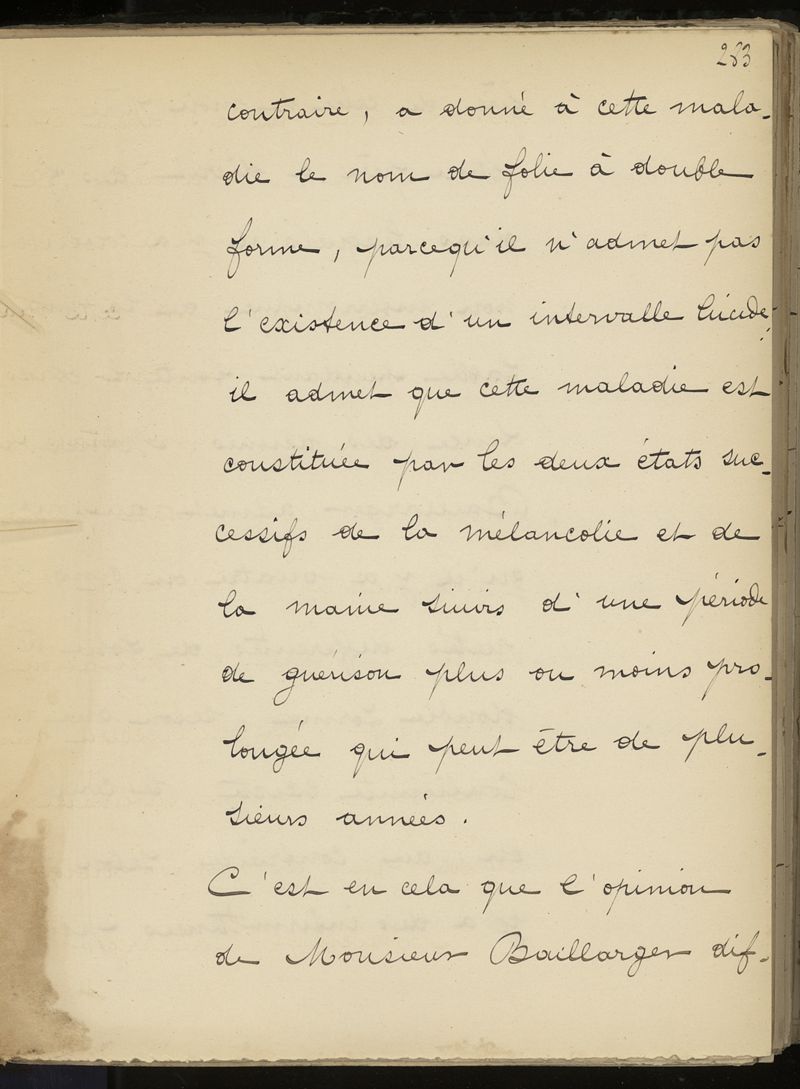 283
contraire, a donné à cette mala-
die le nom de folie à double
forme, parcequ'il n'admet pas
l'existence d'un intervalle lucide;
il admet que cette maladie est
constituée par les deux états suc-
cessifs de la mélancolie et de
la manie suivis d'une période
de guérison plus ou moins pro-
longée qui peut être de plu-
sieurs années.
C'est en cela que l'opinion
de Monsieur Baillarger dif-